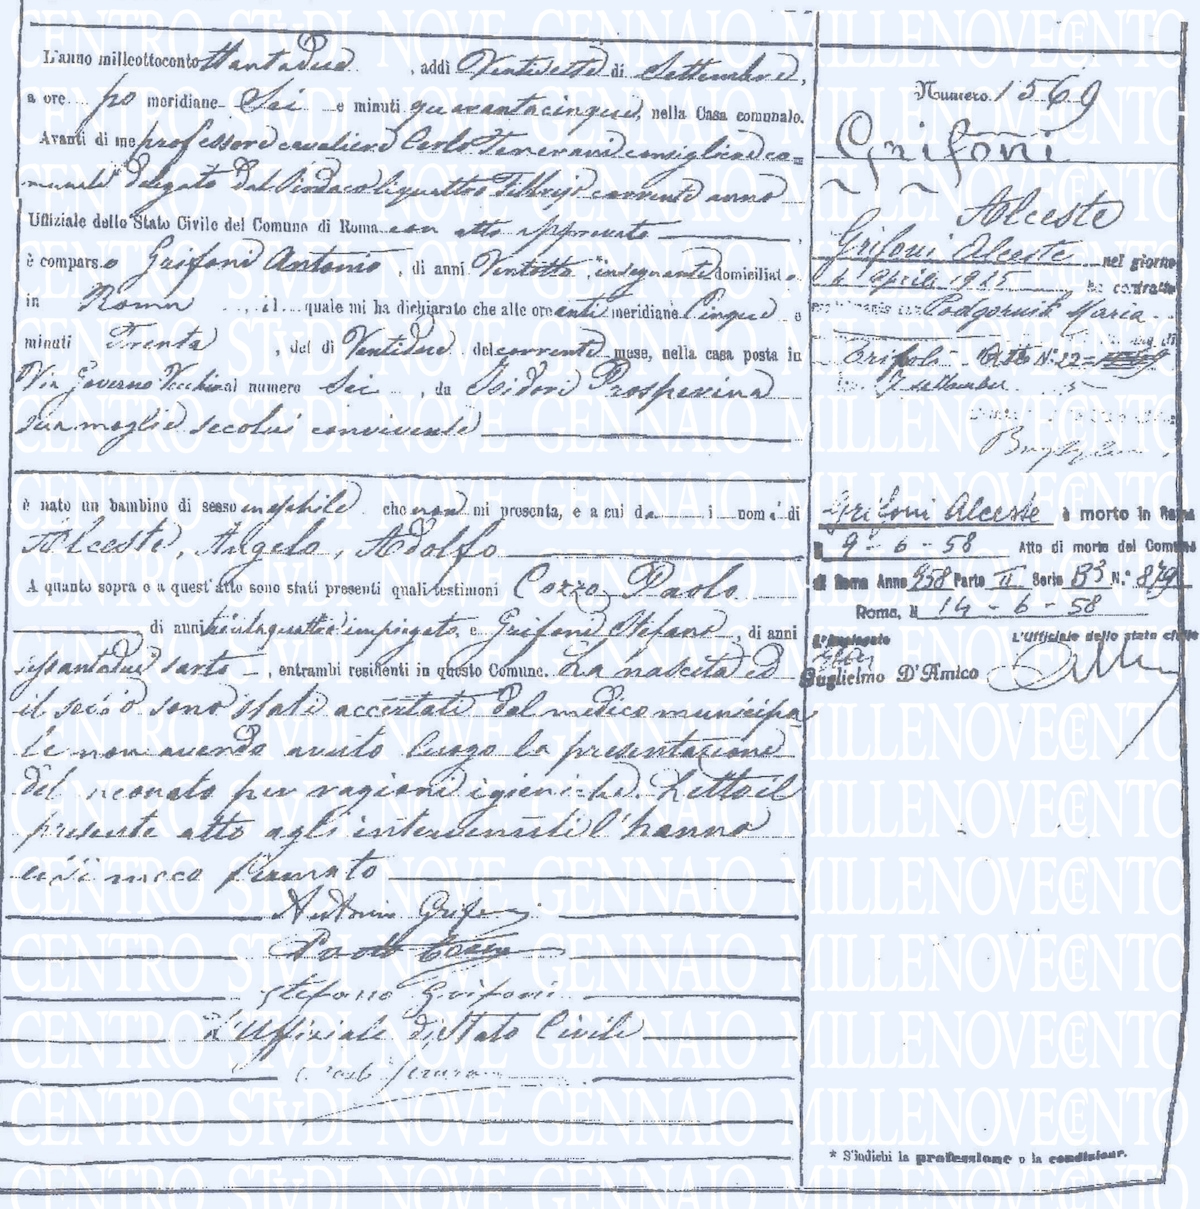 L'anno milleottocento ttantadue , addì Ventisette di Settembre,
a ore po meridiane Sei e minuti quarantacinque, nella Casa comunale.
Avanti di me professore cavaliere Carlo Tenerani consigliere co=
munale delegato dal Sindaco li quattro Febbrajo corrente anno
Uffiziale dello Stato Civile del Comune di Roma con atto approvato ,
è comparso Grifoni Antonio , di anni Ventotto insegnante domiciliato
in Roma , il quale mi ha dichiarato che alle ore anti meridiane Cinque e
minuti Trenta , del dì Ventidue del corrente mese, nella casa posta in
Via Governo Vecchio al numero Sei , da Isidori Prosperina
sua moglie seco lui convivente
è nato un bambino di sesso maschile che non mi presenta, e a cui da i nomi di
Alceste, Angelo, Adolfo
A quanto sopra e a quest'atto sono stati presenti quali testimoni Cozzo Paolo
di anni impiegato, e Grifoni Stefano , di anni
sessantadue sarto , entrambi residenti in questo Comune. La nascita ed
il sesso sono stati accertati dal medico municipa
le non avendo avuto luogo la presentazione
del neonato per ragioni igieniche. Letto il
presente atto agli intervenuti l'hanno
con meco firmato
Antonio Grifoni
Paolo Cozzo
Stefano Grifoni
L'Uffiziale di Stato Civile
Numero 1569
Grifoni
Alceste
Grifoni Alceste nel giorno
aprile 1915 ha contratto
matrimonio con Podgornik Maria
Tripoli Atto N. 22
7 settembre
Grifoni Alceste è morto in Roma
il 9-6-58 Atto di morte del Comune
di Roma Anno 958 Parte II Serie B3 N.° 879
Roma, li 14-6-58
L'Impiegato L'Ufficiale dello stato civile
Guglielmo D'Amico
* S'indichi la professione o la condizione.
CENTRO STVDI NOVE GENNAIO MILLENOVECENTO